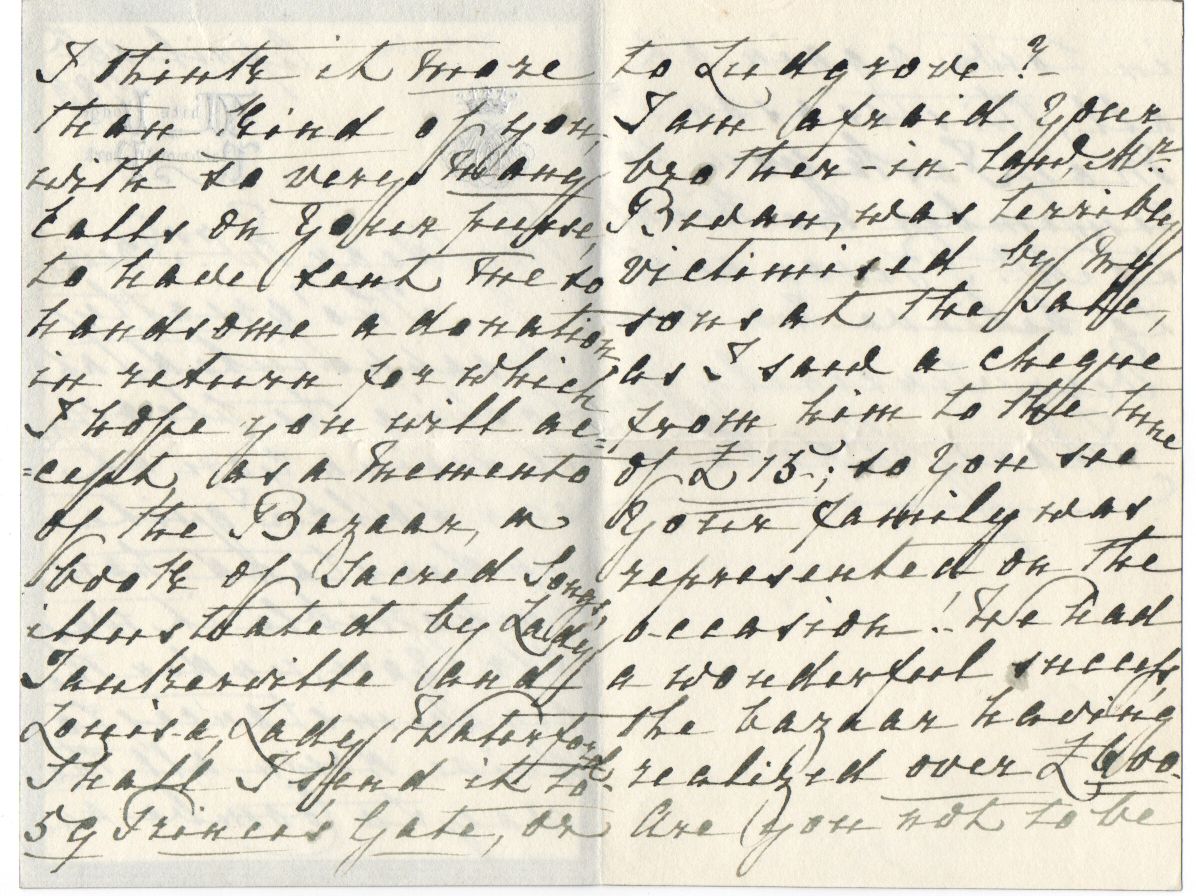 I think it more
than kind of you,
with so very many
calls on your purse,
to have sent me so
handsome a donation
in return for which
I hope you will ac=
=cept, as a memento
of the Bazaar, a
book of Sacred Songs,
illustrated by Lady
Tankerville and
Louisa Lady Waterford.
Shall I send it to
59 Princes Gate, or
to Ludgrove?
I am afraid your
brother-in-law, Mr.
Bevan, was terribly
victimised by my
sons at the Sale,
as I saw a cheque
from him to the tune
of £15; so you see
your family was
represented on the
occasion! We had
a wonderful success,
the bazaar having
realized over £600.
Are you not to be